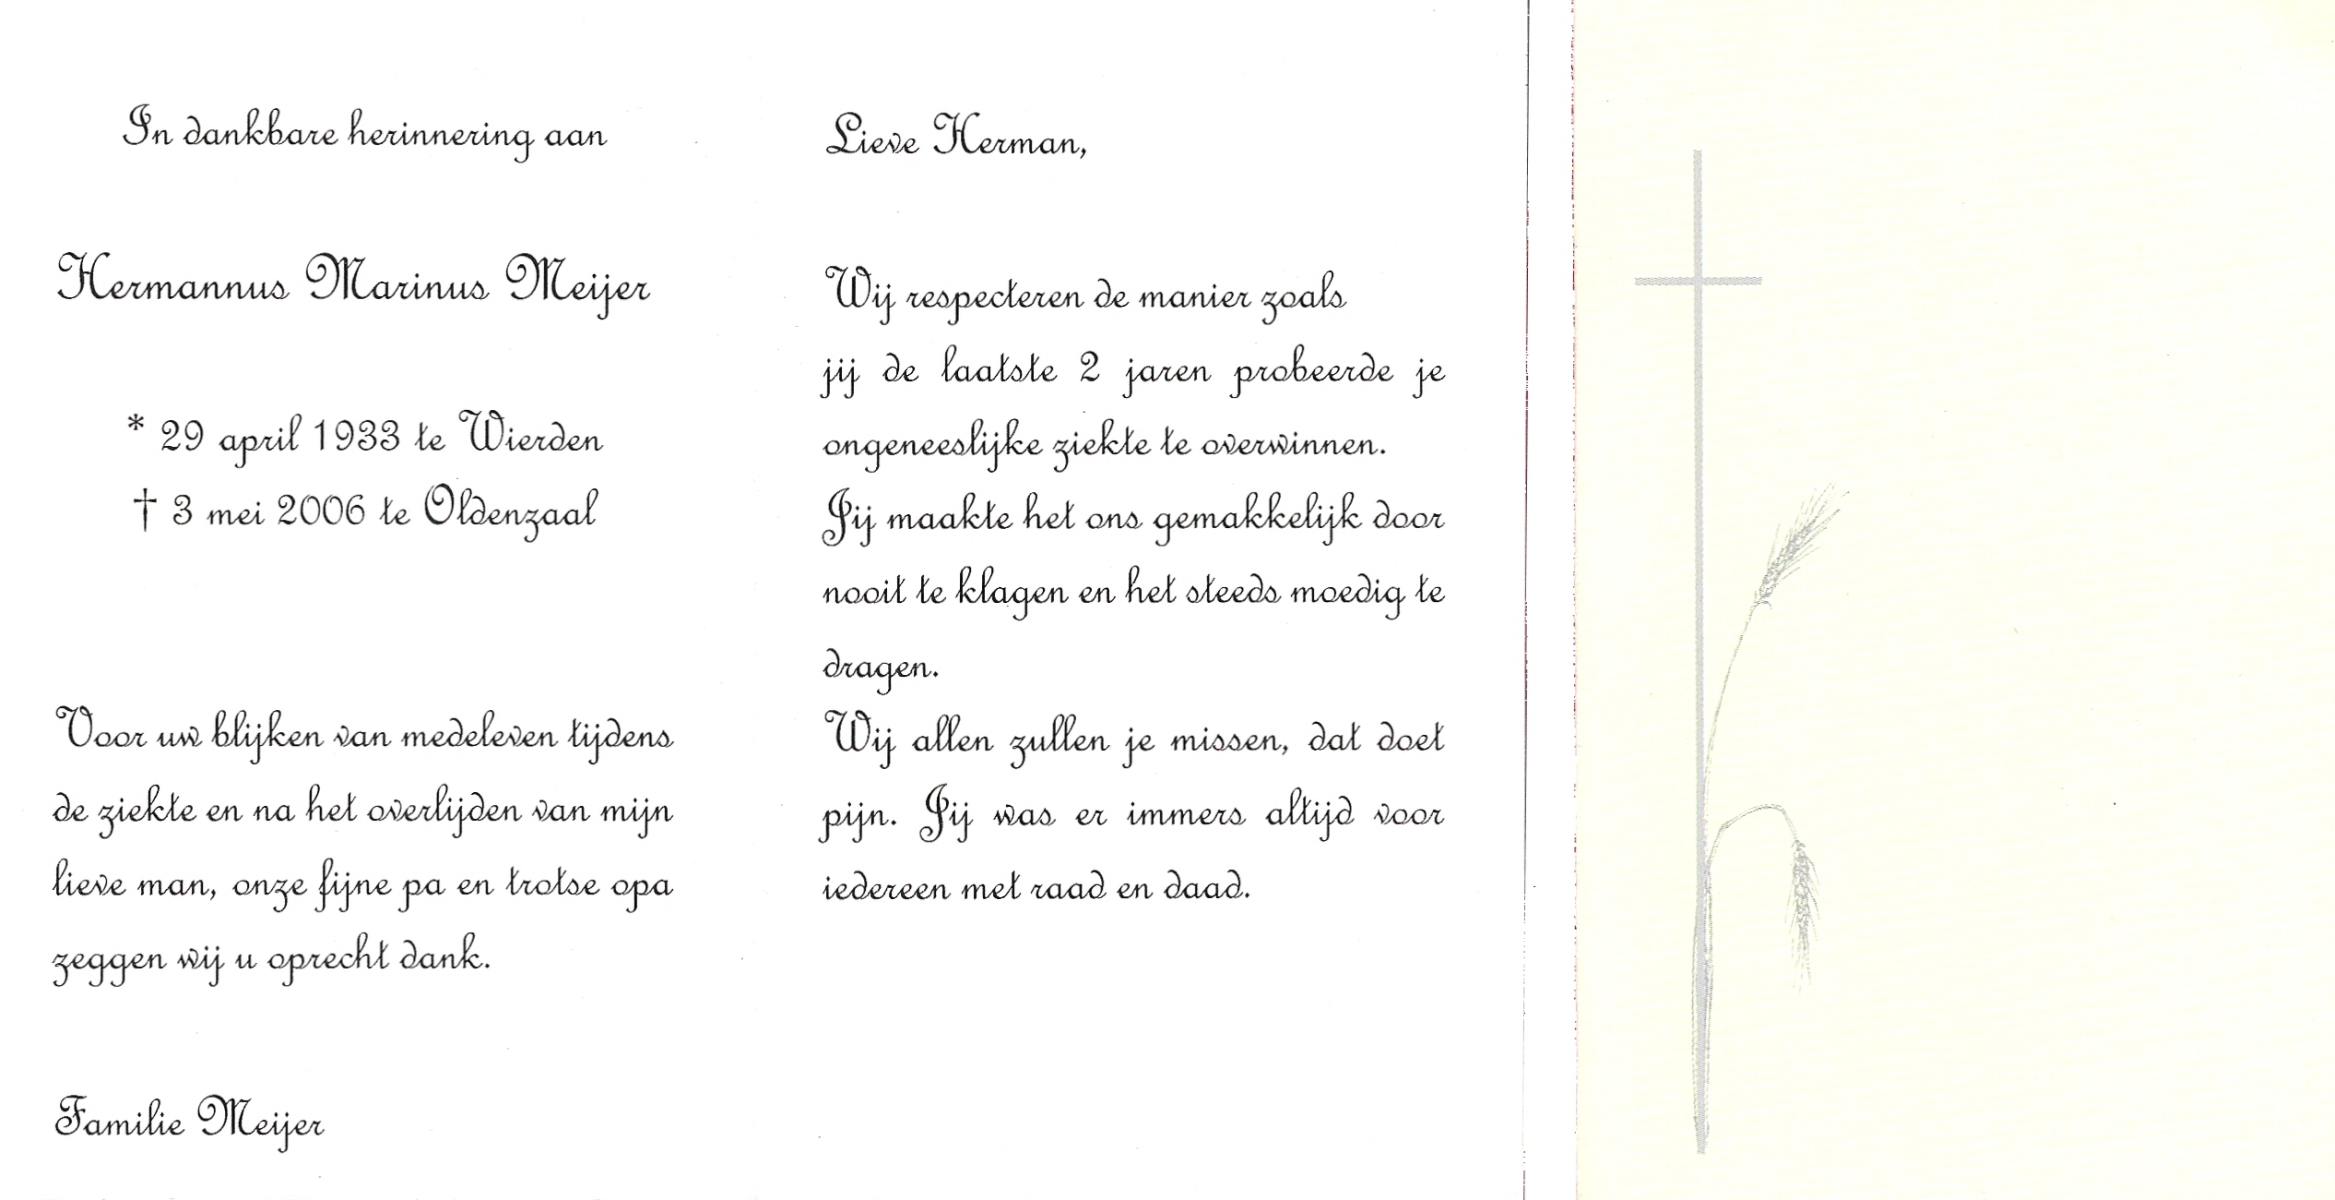 In dankbare herinnering aan
Hermannus Marinus Meijer
* 29 april 1933 te Wierden
† 3 mei 2006 te Oldenzaal
Voor uw blijken van medeleven tijdens
de ziekte en na het overlijden van mijn
lieve man, onze fijne pa en trotse opa
zeggen wij u oprecht dank.
Familie Meijer
Lieve Herman,
Wij respecteren de manier zoals
jij de laatste 2 jaren probeerde je
ongeneeslijke ziekte te overwinnen.
Jij maakte het ons gemakkelijk door
nooit te klagen en het steeds moedig te
dragen.
Wij allen zullen je missen, dat doet
pijn. Jij was er immers altijd voor
iedereen met raad en daad.